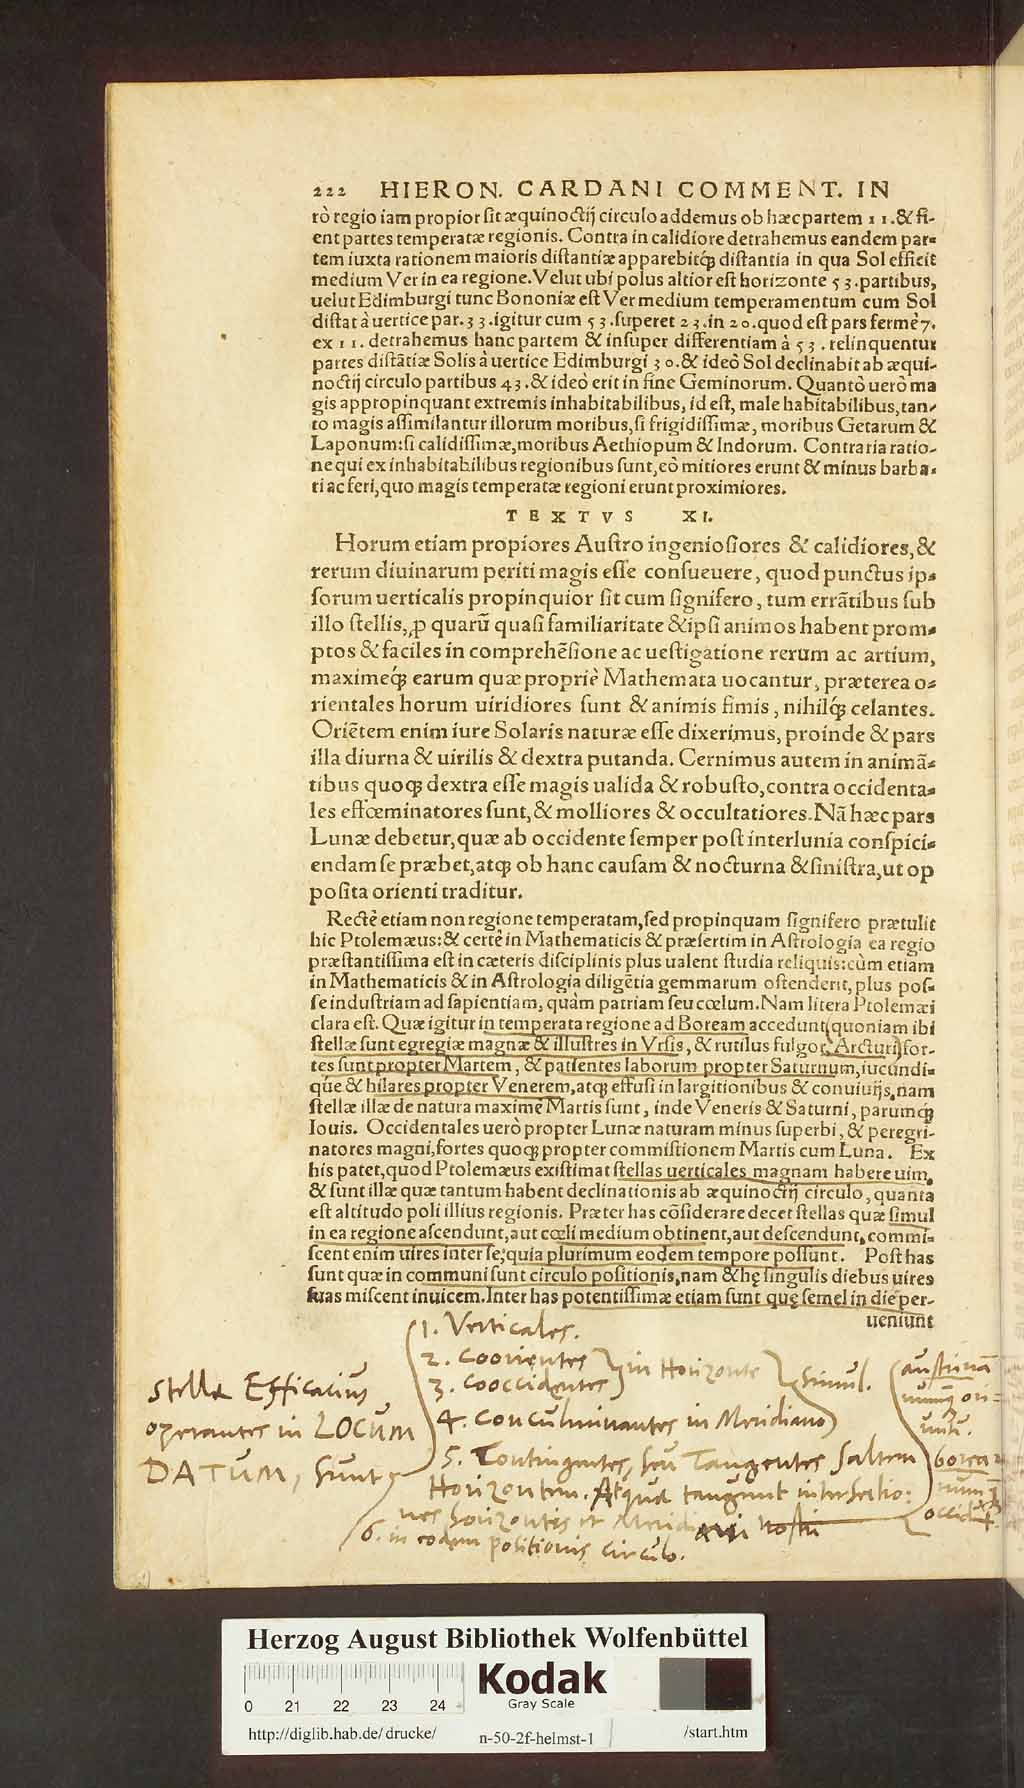 222 HIERON. CARDANI COMMENT. IN
rò regio iam propior sit æquinoctij circulo addemus ob hæc partem 11. & fi-
ent partes temperatæ regionis. Contra in calidiore detrahemus eandem par-
tem iuxta rationem maioris distantiæ apparebitq́; distantia in qua Sol efficit
medium Ver in ea regione. Velut ubi polus altior est horizonte 53. partibus,
uelut Edimburgi tunc Bononiæ est Ver medium temperamentum cum Sol
distat à uertice par. 33. igitur cum 53. superet 23. in 20. quod est pars fermè 7.
ex 11. detrahemus hanc partem & insuper differentiam à 53. relinquentur
partes distãtiæ Solis à uertice Edimburgi 30. & ideò Sol declinabit ab æqui-
noctij circulo partibus 43. & ideò erit in fine Geminorum. Quantò uerò ma
gis appropinquant extremis inhabitabilibus, id est, male habitabilibus, tan-
to magis assimilantur illorum moribus, si frigidissimæ, moribus Getarum &
Laponum: si calidissimæ, moribus Aethiopum & Indorum. Contraria ratio-
ne qui ex inhabitabilibus regionibus sunt, eò mitiores erunt & minus barba-
ri ac feri, quo magis temperatæ regioni erunt proximiores.
TEXTVS XI.
Horum etiam propiores Austro ingeniosiores & calidiores, &
rerum diuinarum periti magis esse consueuere, quod punctus ip-
sorum uerticalis propinquior sit cum signifero, tum errãtibus sub
illo stellis, ꝓ quarũ quasi familiaritate & ipsi animos habent prom-
ptos & faciles in comprehẽsione ac uestigatione rerum ac artium,
maximeq́; earum quæ propriè Mathemata uocantur, præterea o-
rientales horum uiridiores sunt & animis fimis, nihilq́; celantes.
Oriẽtem enim iure Solaris naturæ esse dixerimus, proinde & pars
illa diurna & uirilis & dextra putanda. Cernimus autem in animã-
tibus quoq; dextra esse magis ualida & robusto, contra occidenta-
les effœminatores sunt, & molliores & occultatiores. Nã hæc pars
Lunæ debetur, quæ ab occidente semper post interlunia conspici-
endam se præbet, atq; ob hanc causam & nocturna & sinistra, ut op
posita orienti traditur.
Rectè etiam non regione temperatam, sed propinquam signifero prætulit
hic Ptolemæus: & certè in Mathematicis & præsertim in Astrologia ea regio
præstantissima est in cæteris disciplinis plus ualent studia reliquis: cùm etiam
in Mathematicis & in Astrologia diligẽtia gemmarum ostenderit, plus pos-
se industriam ad sapientiam, quàm patriam seu cœlum. Nam litera Ptolemæi
clara est. Quæ igitur in temperata regione ad Boream accedunt, quoniam ibi
stellæ sunt egregiæ magnæ & illustres in Vrsis, & rutilus fulgor Arcturi, for-
tes sunt propter Martem, & patientes laborum propter Saturnum, iucundi-
que & hilares propter Venerem, atq; effusi in largitionibus & conuiuijs, nam
stellæ illæ de natura maximè Martis sunt, inde Veneris & Saturni, parumq́;
Iouis. Occidentales uerò propter Lunæ naturam minus superbi, & peregri-
natores magni, fortes quoq; propter commistionem Martis cum Luna. Ex
his patet, quod Ptolemæus existimat stellas uerticales magnam habere uim,
& sunt illæ quæ tantum habent declinationis ab æquinoctij circulo, quanta
est altitudo poli illius regionis. Præter has cõsiderare decet stellas quæ simul
in ea regione ascendunt, aut cœli medium obtinent, aut descendunt, commi-
scent enim uires inter se, quia plurimum eodem tempore possunt. Post has
sunt quæ in communi sunt circulo positionis, nam & hę singulis diebus uires
suas miscent inuicem. Inter has potentissimæ etiam sunt quę semel in die per-
ueniunt
Stellæ Efficacius
operantes in LOCUM
DATUM, sunt
1. Verticales.
2. Coorientes
3. Cooccidentes
in Horizonte
4. Conculminantes in Meridiano
Simul.
5. Contingentes, seu Tangentes saltem
Horizontem. Atque tangunt intersectio:
nes horizontis et Meridiani nostri
6. in eodem positionis circulo.